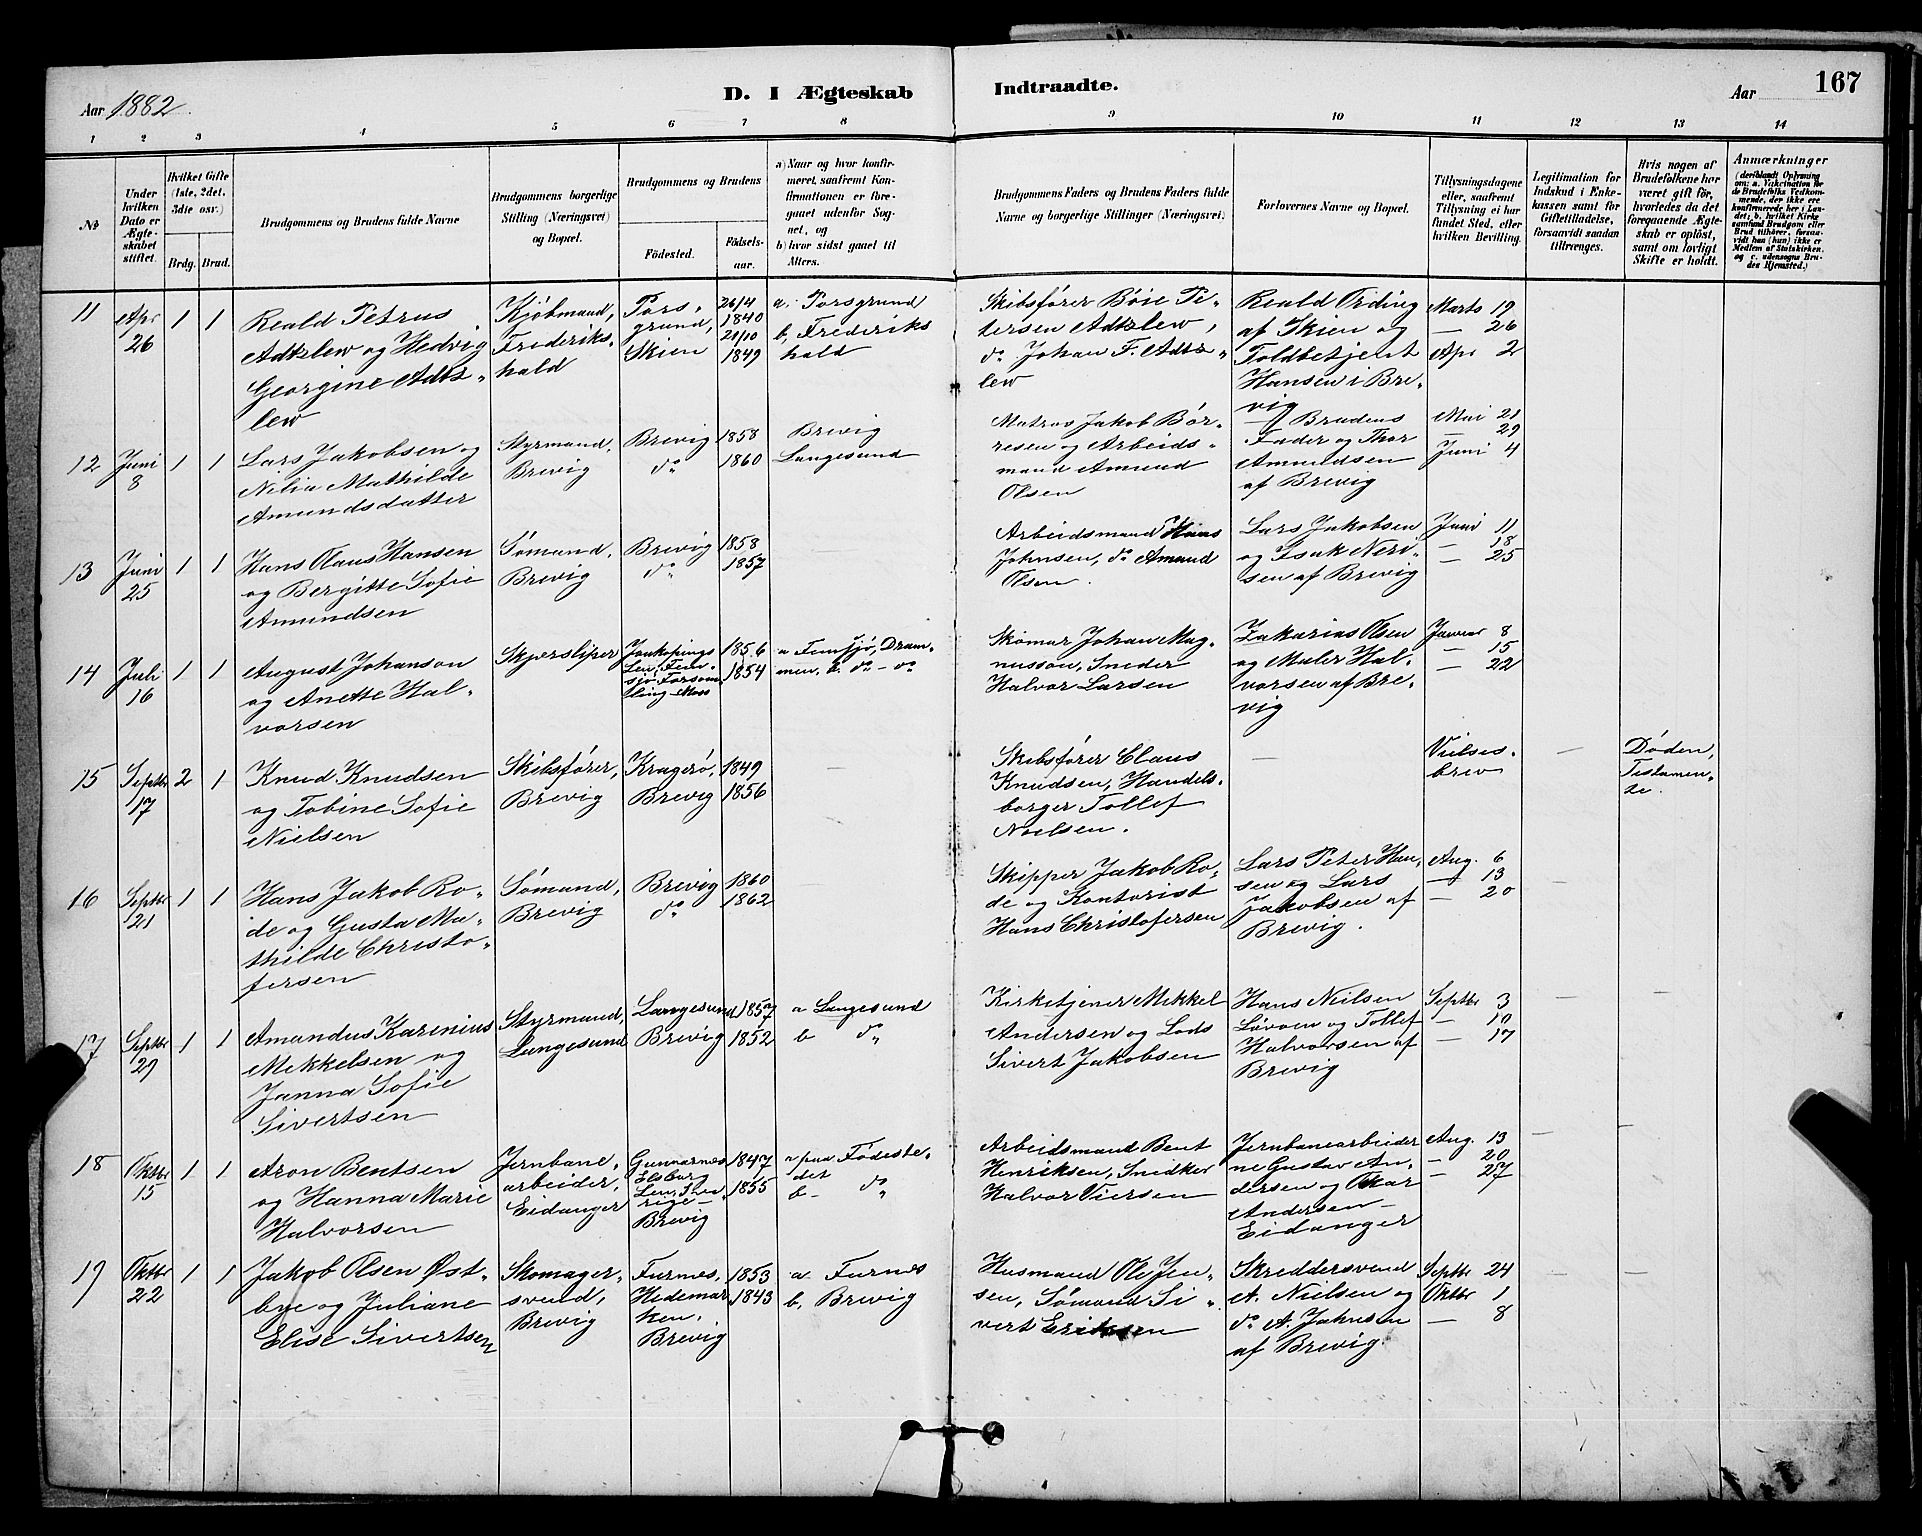 Aar 1882
D. I Ægteskab
Indtraadte.
Aar
167
1 2 3 4 5 6 7 8 9 10 11 12 13 14
No
Under hvilken Dato er Ægteskabet stiftet.
Hvilket Gifte (1ste, 2det, 3die osv.)
Brdg. Brud.
Brudgommens og Brudens fulde Navne
Brudgommens borgerlige Stilling (Næringsvei) og Bopæl.
Brudgommens og Brudens
Fødested.
Fødselsaar.
a) Naar og hvor konfirmeret, saafremt Konfirmationen er foregaaet udenfor Sognet, og
b) hvor sidst gaaet til Alters.
Brudgommens Faders og Brudens Faders fulde Navne og borgerlige Stillinger (Næringsvei).
Forlovernes Navne og Bopæl.
Tillysningsdagene eller, saafremt Tillysning ei har fundet Sted, efter hvilken Bevilling.
Legitimation for Indskud i Enkekassen samt for Giftetilladelse, forsaavidt saadan tiltrænges.
Hvis nogen af Brudefolkene har været gift før, hvorledes da det foregaaende Ægteskab er opløst, samt om lovligt Skifte er holdt.
Anmærkninger (deriblandt Oplysning om: a. Vakcination for de Brudefolks Vedkommende, der ikke ere konfirmerede her i Landet; b. hvilket Kirkesamfund Brudgom eller Brud tilhører, forsaavidt han (hun) ikke er Medlem af Statskirken, og c. udensogns Brudes Hjemsted.)
11
Apr
26
1 1
Reald Petrus
Adtzlew og Hedvig
Georgine Adtz-
lew
Kjøbmand,
Frederiks-
hald
Pors-
grund,
Skien
26/4
1840
21/10
1849
a. Porsgrund
b. Frederiks
hald
Skibsfører Böie Pe-
tersen Adtzlew,
do Johan F. Adtz-
lew
Reald Ording
af Skien og
Toldbetjent
Hansen i Bre-
vig
Marts 19
— 26
Apr 2
12
Juni
8
1 1
Lars Jakobsen og
Nelia Mathilde
Amundsdatter
Styrmand,
Brevig
Brevig
do
1858
1860
Brevig
Langesund
Matros Jakob Bör-
resen og Arbeids-
mand Amund
Olsen
Brudens
Fader og Thor
Amundsen
af Brevig
Mai 21
— 29
Juni 4
13
Juni
25
1 1
Hans Olaus Hansen
og Bergitte Sofie
Amundsen
Sömand,
Brevig
Brevig
do
1858
1857
Arbeidsmand Hans
Johnsen, do Amund
Olsen.
Lars Jakobsen
og Isak Neri-
sen af Brevig
Juni 11
— 18
— 25
14
Juli
16
1 1
August Johanson
og Anette Hal-
vorsen
Skjærsliper
Jonkøpings
Len,
Moss
1856
1854
Dram-
men, b. do — do
Johan Mag-
nusson, Smeder
Halvor Larsen
Zakarias Olsen
og Maler Hal-
vorsen af Bre-
vig
Januar 8
— 15
— 22
15
Septbr
17
2 1
Knud Knudsen
og Tobine Sofie
Nielsen
Skibsfører,
Brevig
Kragerö,
Brevig
1849
1856
—
Skibsfører Claus
Knudsen, Handels-
borger Tollef
Nielsen.
—
Vielses-
brev
—
Døden,
Testamen-
te.
16
Septbr
21
1 1
Hans Jakob Ro-
de og Gusta Ma-
thilde Christo-
fersen
Sömand,
Brevig
Brevig
do
1860
1862
—
Skipper Jakob Ro-
de og Kontorist
Hans Christofersen
Lars Peter Han-
sen og Lars
Jakobsen af
Brevig.
Aug. 6
— 13
— 20
— —
17
Septbr
29
1 1
Amandus Karinius
Mekkelsen og
Janna Sofie
Sivertsen
Styrmand,
Langesund
Langesund
Brevig
1857
1852
a Langesund
b do
Kirketjener Mekkel
Andersen og Lods
Sivert Jakobsen
Hans Nielsen
Løvoen og Tollef
Halvorsen af
Brevig
Septbr 3
— 10
— 17
— —
18
Oktbr
15
1 1
Aron Bentsen
og Hanna Marie
Halvorsen
Jernbane-
arbeider,
Eidanger
Gunnarnes
Elsborg
Len, Sve-
rige —
Brevig
1847
1855
a paa Fødeste-
det
b — do
Arbeidsmand Bent
Henriksen, Snidker
Halvor Viersen
Jernbanearbeider
ne Gustav An-
dersen og Oskar
Andersen —
Eidanger
Aug. 13
— 20
— 27
— —
19
Oktbr
22
1 1
Jakob Olsen Øst-
bye og Juliane
Elise Sivertsen
Skomager-
svend,
Brevig
Furnes,
Hedemar
ken.
Brevig
1853
1843
a. Furnes
b. Brevig
Husmand Ole Jen-
sen, Sömand Si-
vert Eriksen
Skreddersvend
A. Nielsen og
do A. Jahnsen
af Brevig.
Septbr 24
Oktbr 1
— 8
— —